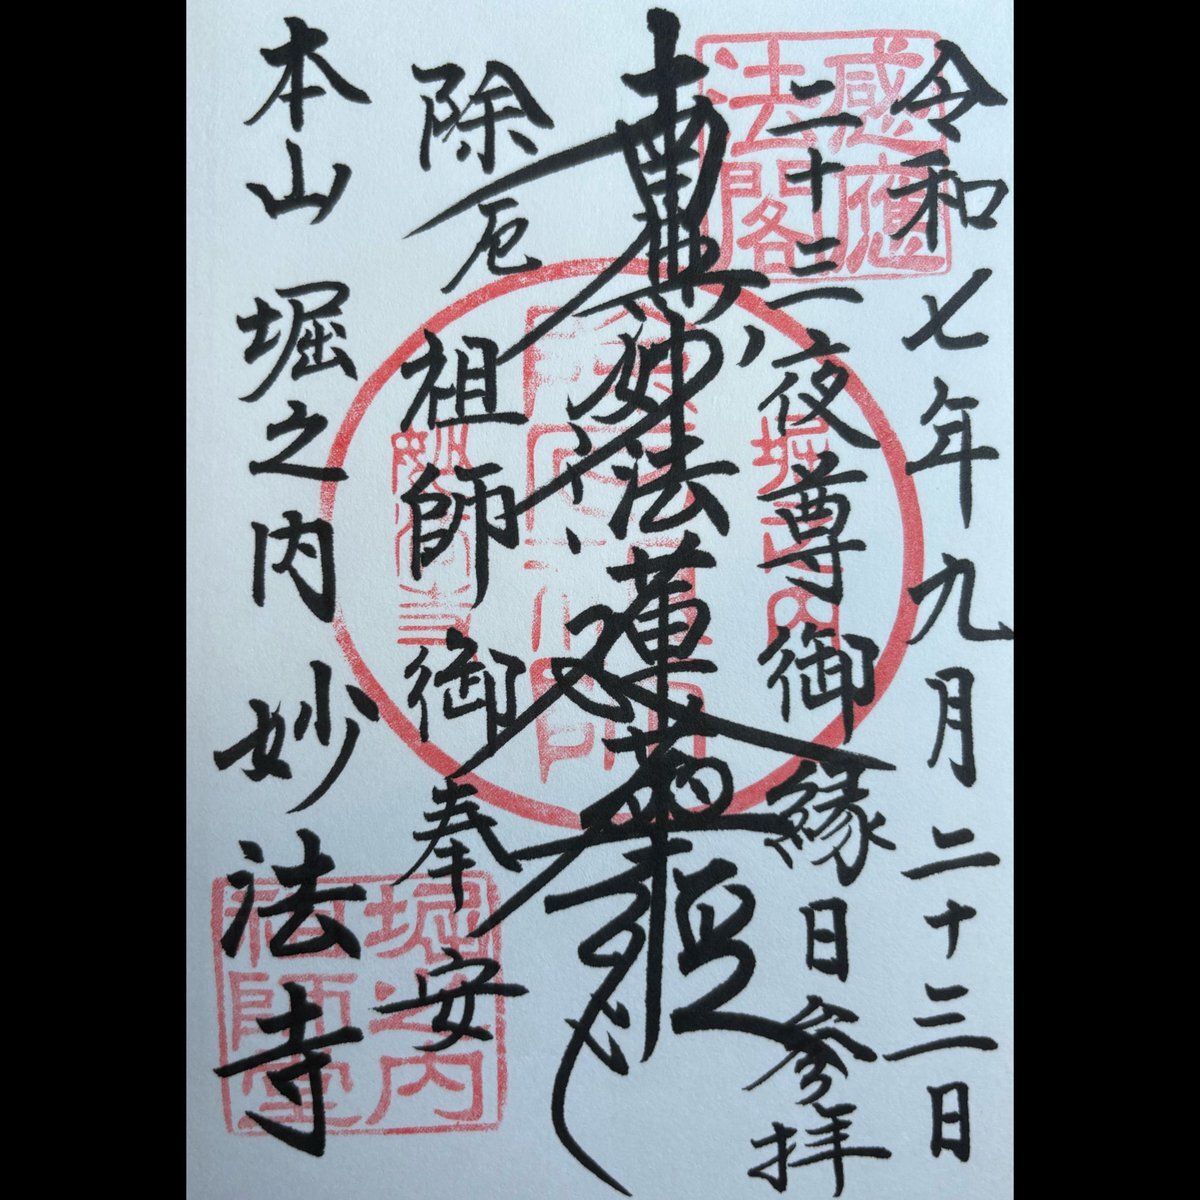 令和七年九月二十三日
二十三夜尊御縁日参拝
南無妙法蓮華経
除厄祖師御奉安
本山 堀之内 妙法寺
感應
法閣
堀之内
除厄祖師
妙法寺
堀之内
祖師堂